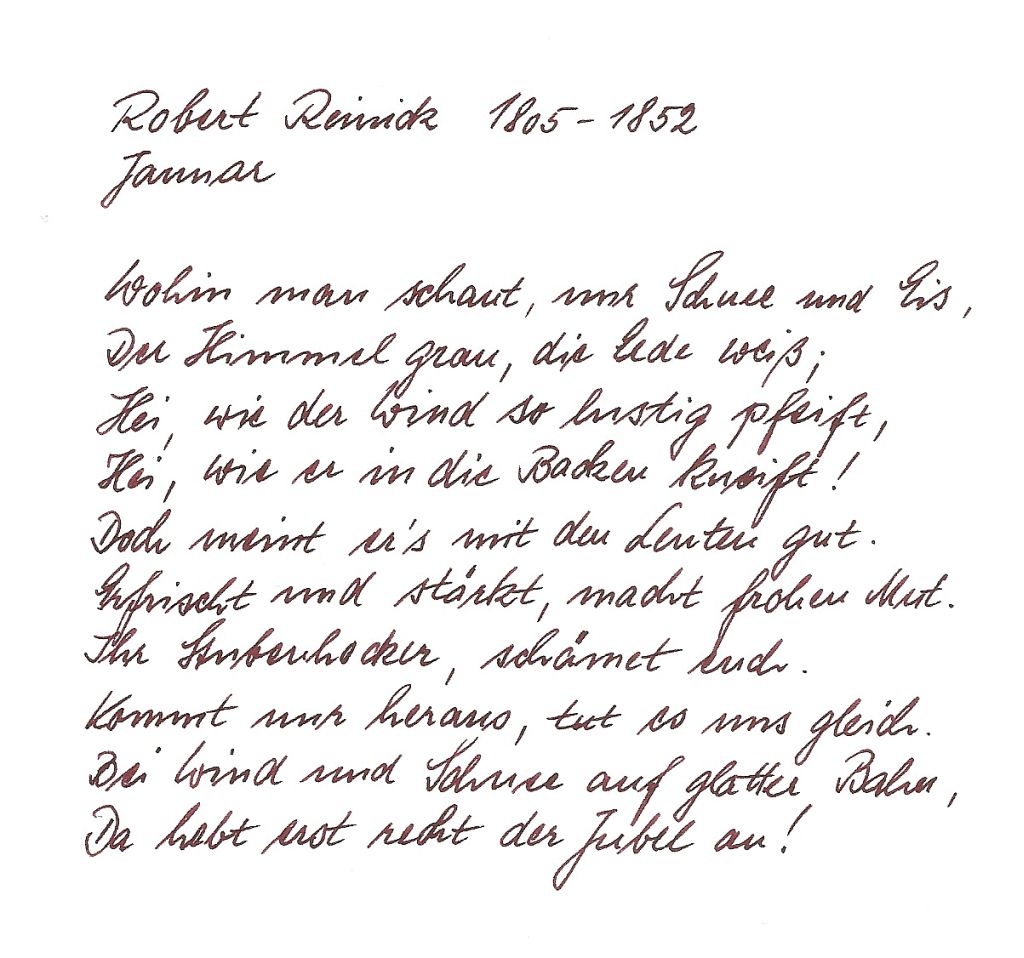 Robert Reinick 1805-1852
Januar
Wohin man schaut, nur Schnee und Eis,
Der Himmel grau, die Erde weiß;
Hei, wie der Wind so lustig pfeift,
Hei, wie er in die Backen kneift!
Doch meint er's mit den Leuten gut.
Erfrischt und stärkt, macht frohen Mut.
Ihr Stubenhocker, schämet euch.
Kommt nur heraus, tut es uns gleich.
Bei Wind und Schnee auf glatter Bahn,
Da hebt erst recht der Jubel an!